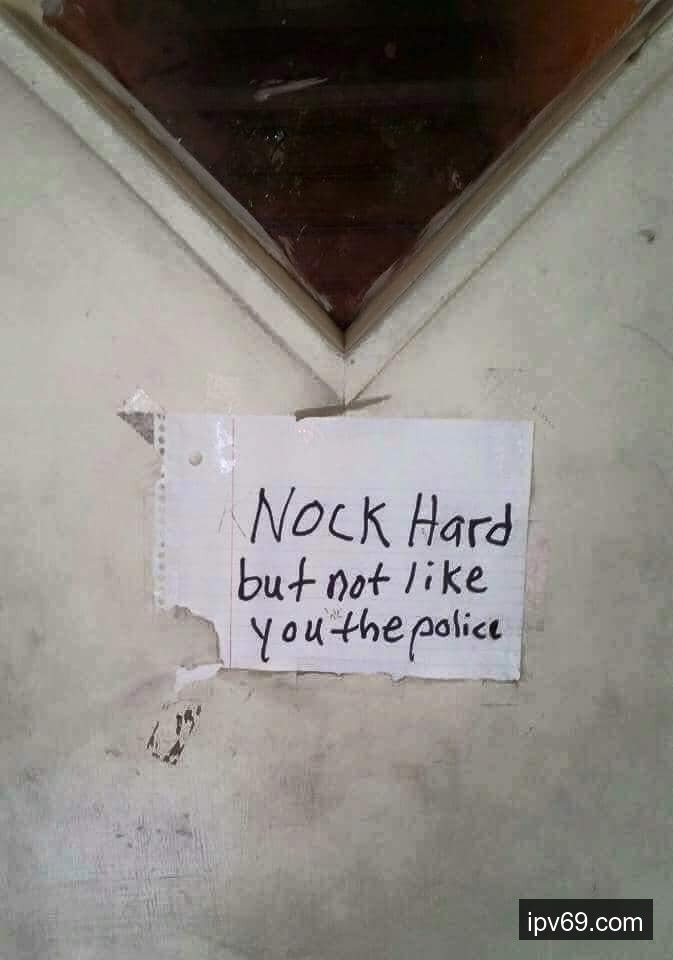 NOCK Hard
but not like
you the police
ipv69.com